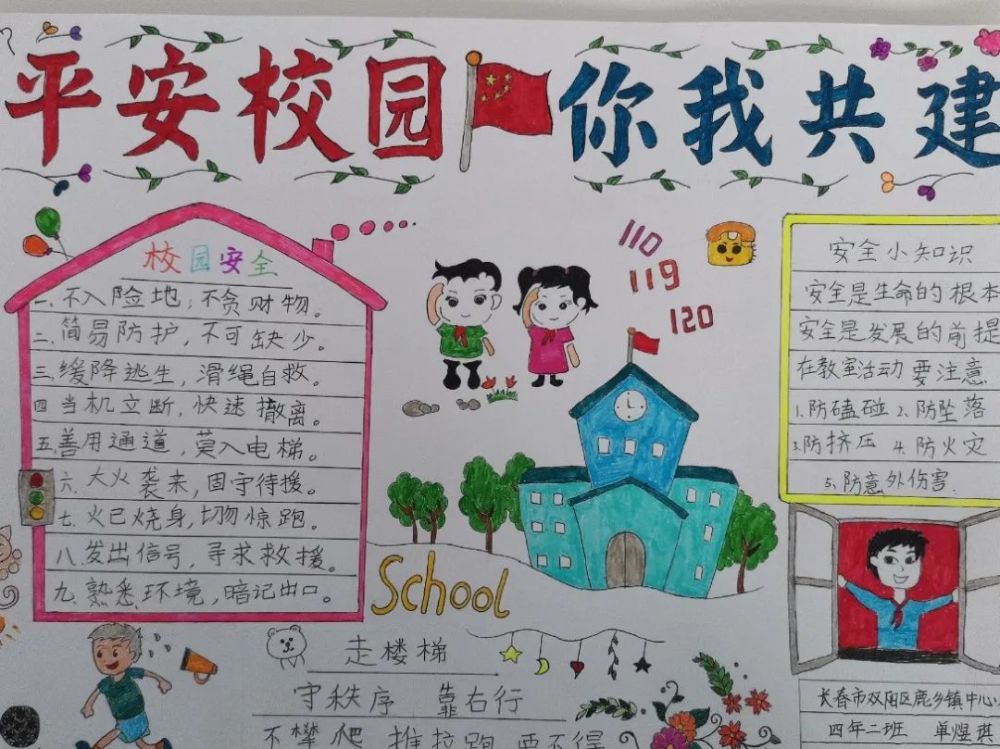 平安校园 你我共建
校园安全
一、不入险地,不贪财物。
二、简易防护,不可缺少。
三、缓降逃生,滑绳自救。
四当机立断,快速撤离。
五、善用通道,莫入电梯。
六、大火袭来,固守待援。
七、火已烧身,切勿惊跑。
八、发出信号,寻求救援。
九、熟悉环境,暗记出口。
110
119
120
School
安全小知识
安全是生命的根本
安全是发展的前提
在教室活动要注意
1、防磕碰 2、防坠落
3、防挤压 4、防火灾
5、防意外伤害.
走楼梯
守秩序 靠右行
不攀爬 推拉跑 要不得
长春市双阳区鹿乡镇中心
四年二班 单煜琪